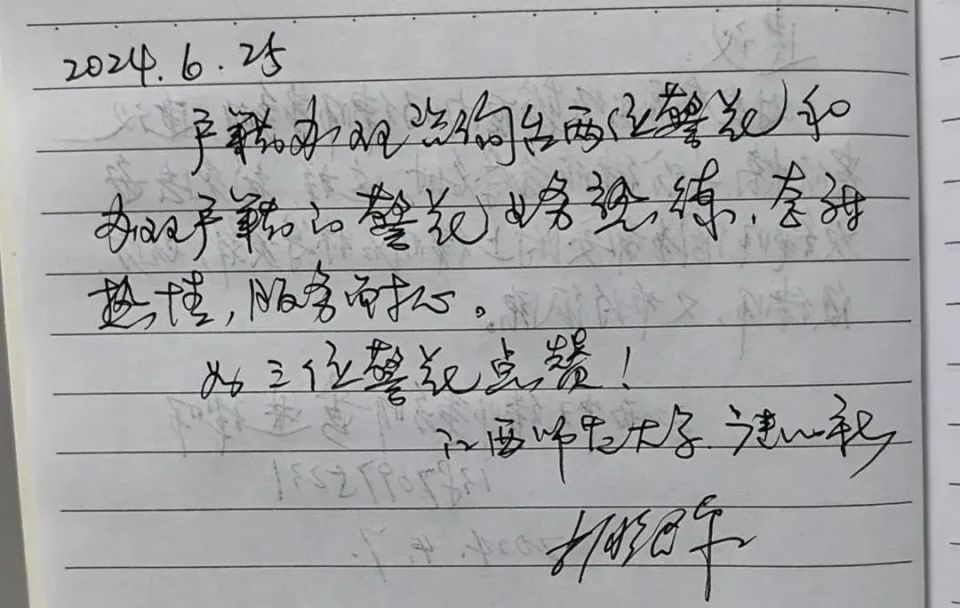 2024.6.25
户籍办理咨询台两位警花和
办理户籍的警花业务熟练,态度
热情,服务耐心。
为三位警花点赞!
江西师范大学